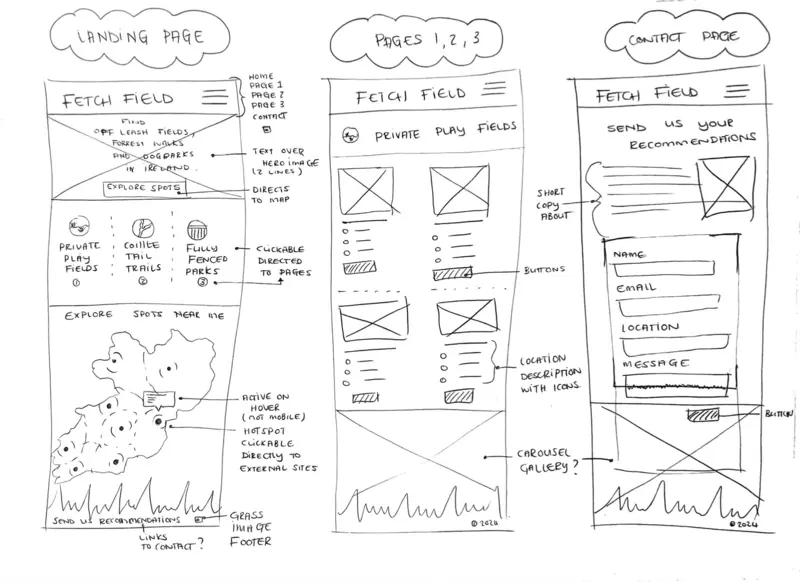 LANDING PAGE
FETCH FIELD
HOME
PAGE 1
PAGE 2
PAGE 3
CONTACT
FIND
OFF LEASH FIELDS,
FORREST WALKS
AND DOGPARKS
IN IRELAND.
EXPLORE SPOTS
TEXT OVER
HERO IMAGE
(2 LINES)
DIRECTS
TO MAP
PRIVATE
PLAY
FIELDS
1
COILLTE
TAIL
TRAILS
2
FULLY
FENCED
PARKS
3
CLICKABLE
DIRECTED
TO PAGES
EXPLORE SPOTS NEAR ME
ACTIVE ON
HOVER
(NOT MOBILE)
HOTSPOT
CLICKABLE
DIRECTLY TO
EXTERNAL SITES
SEND US RECOMMENDATIONS
LINKS
TO CONTACT?
GRASS
IMAGE
FOOTER
PAGES 1, 2, 3
FETCH FIELD
PRIVATE PLAY FIELDS
BUTTONS
LOCATION
DESCRIPTION
WITH ICONS
CAROUSEL
GALLERY?
© 2024
CONTACT PAGE
FETCH FIELD
SEND US YOUR
RECOMMENDATIONS
SHORT
COPY
ABOUT
NAME
EMAIL
LOCATION
MESSAGE
BUTTON
© 2024